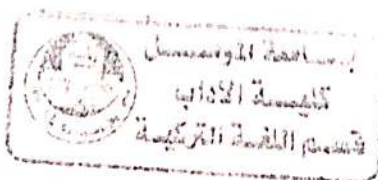 جامعة الموصل
كلية الآداب
قسم اللغة التركية